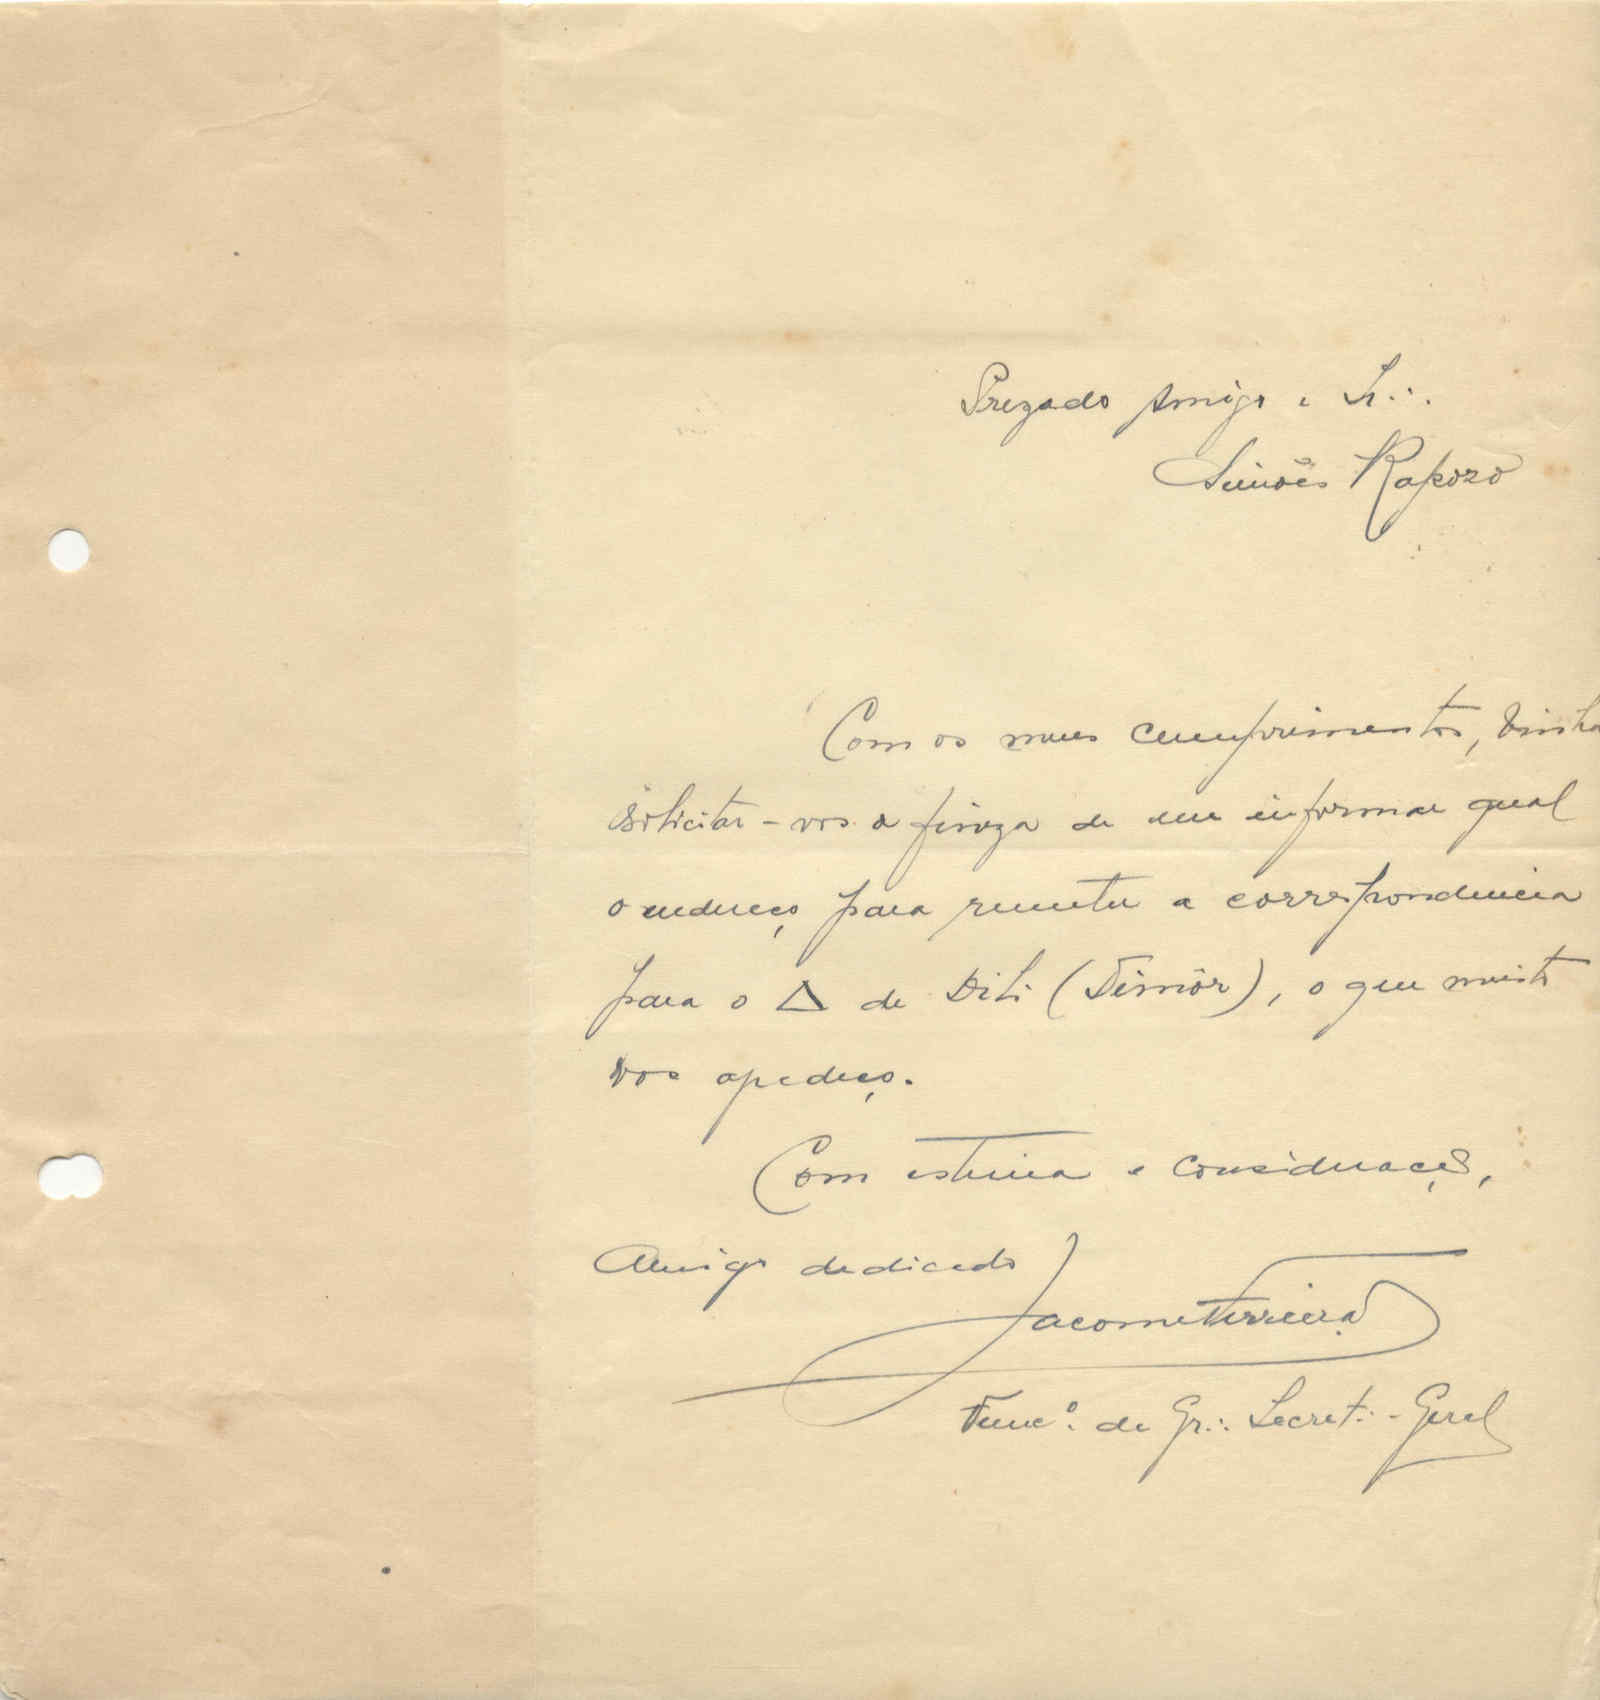 Prezado Amigo e Sr∴
Simões Raposo
Com os meus cumprimentos, vinha
solicitar-vos a fineza de me informar qual
o endereço para remeter a correspondencia
para o △ de Dili (Timôr), o que muito
vos agradeço.
Com estima e consideração,
Amigo dedicado
Jacome Ferreira
Funcº. da Gr∴ Secret∴-Geral